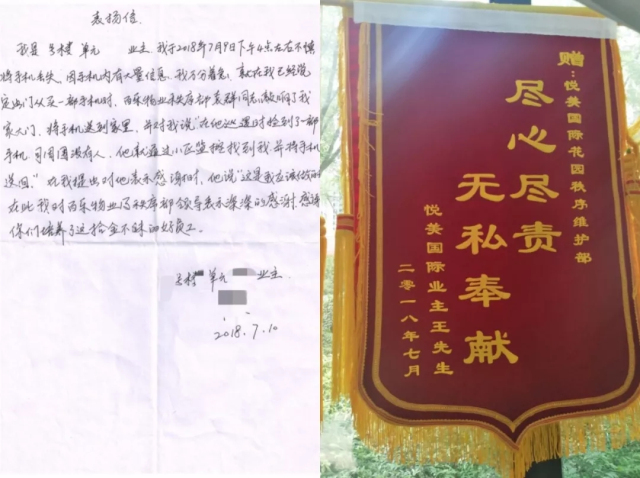 表扬信.
我是 号楼 单元 业主,我于2018年7月9日下午4点左右不慎
将手机丢失。因手机内有重要信息,我万分着急,就在我已经决
定出门从买一部手机时,西乐物业秩序部袁群同志敲响了我
家大门,将手机送到家里,并对我说"在他巡逻时捡到了一部
手机,可周围没有人,他就通过小区监控找到我并将手机
送回。"我提出对他表示感谢时,他说"这是我应该做的"
在此我对西乐物业及秩序部领导表示深深的感谢,感谢
你们培养了这拾金不昧的好员工。
号楼 单元 业主
2018.7.10
赠:悦美国际花园秩序维护部
尽心尽责
无私奉献
悦美国际业主王先生
二零一八年七月